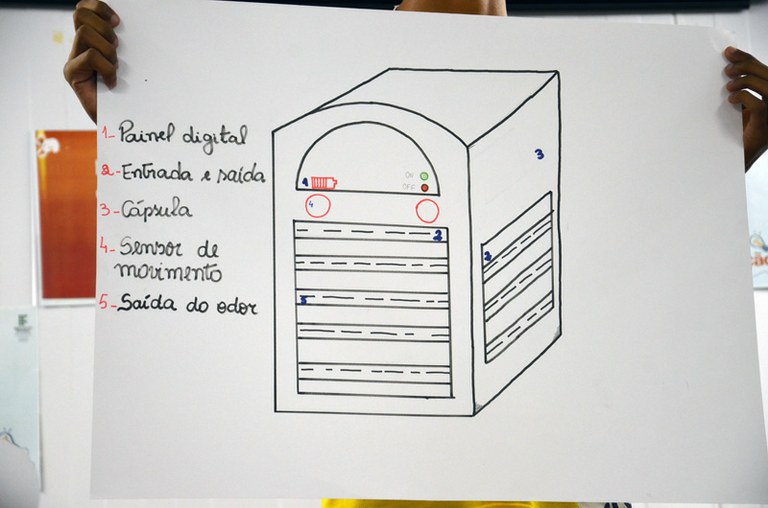 1- Painel digital
2- Entrada e saída
3- Cápsula
4- Sensor de
movimento
5- Saída do odor
3
1
ON
OFF
4
2
2
5